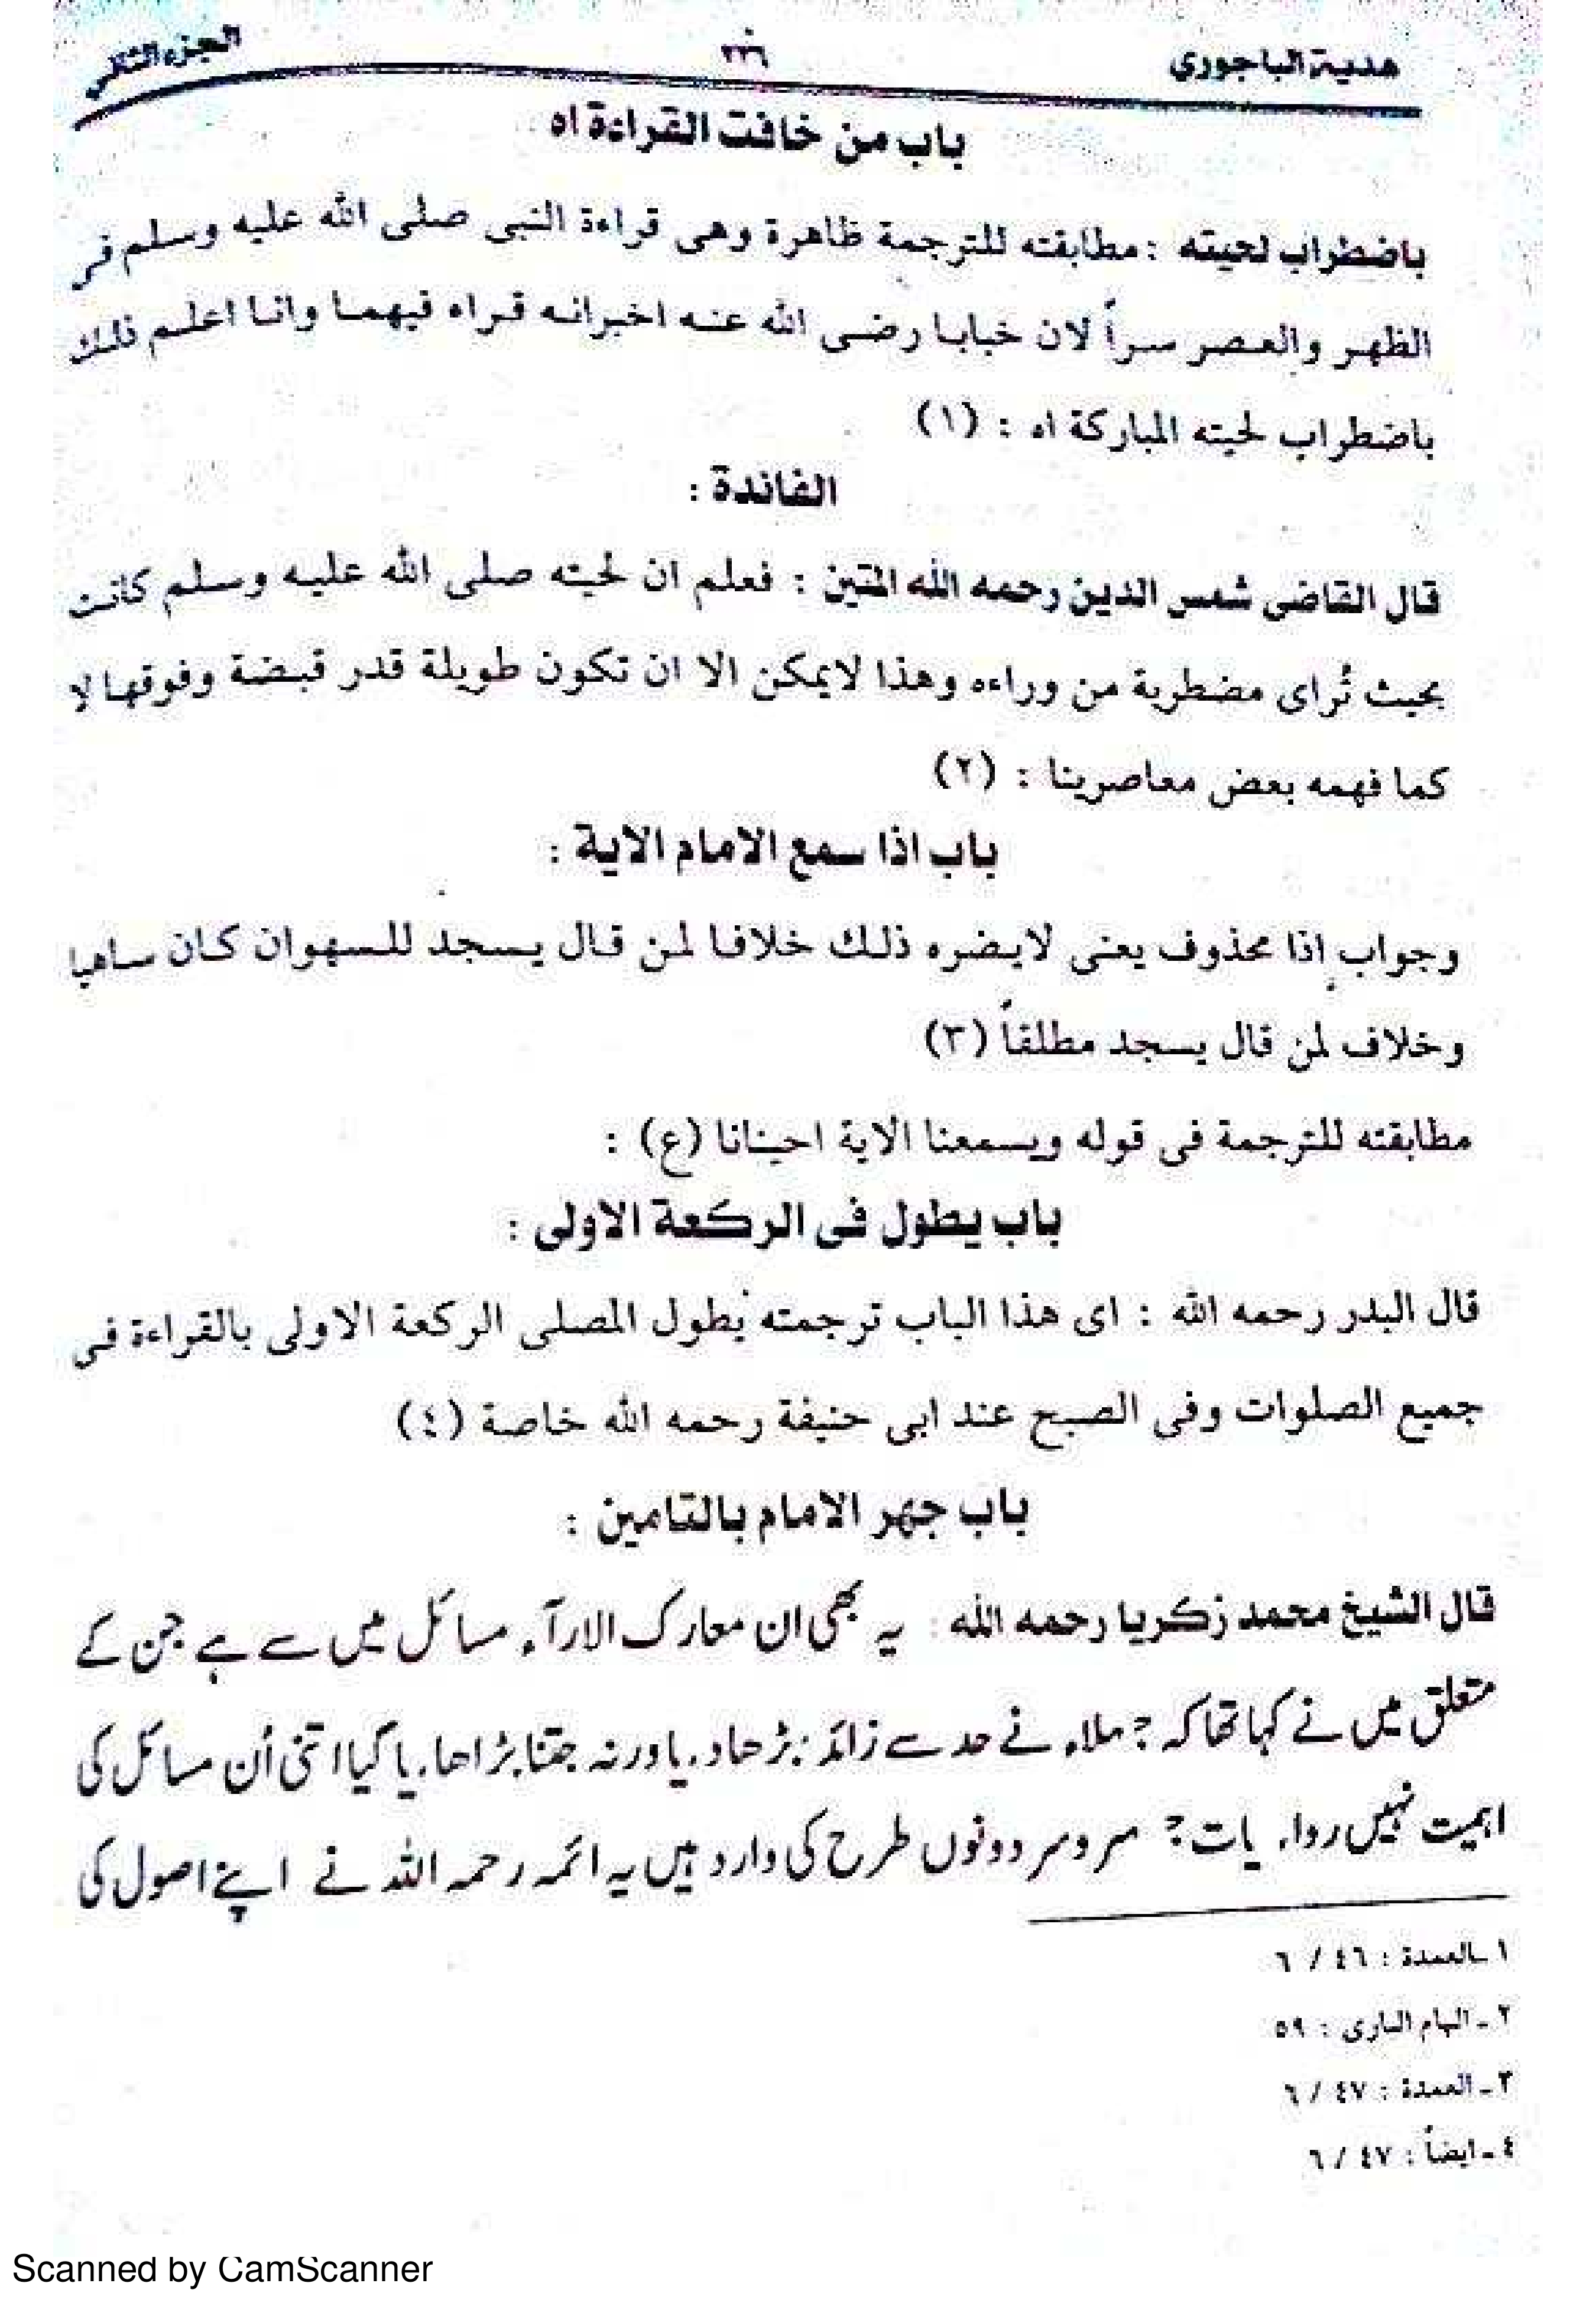 هدية الباجوري
٢٣٦
الجزء الثانى
باب من خافت القراءة اه
باضطراب لحيته : مطابقته للترجمة ظاهرة وهى قراءة النبى صلى الله عليه وسلم فى
الظهر والعصر سراً لان خبابا رضى الله عنه اخبرانه قراه فيهما وانا اعلم ذلك
باضطراب لحيته المباركة اه : (١)
الفائدة :
قال القاضى شمس الدين رحمه الله المتين : فعلم ان لحيته صلى الله عليه وسلم كانت
بحيث تُراى مضطربة من وراءه وهذا لايمكن الا ان تكون طويلة قدر قبضة وفوقها لا
كما فهمه بعض معاصرينا : (٢)
باب اذا سمع الامام الاية :
وجواب إذا محذوف يعنى لايضره ذلك خلافا لمن قال يسجد للسهوان كان ساهيا
وخلاف لمن قال يسجد مطلقاً (٣)
مطابقته للترجمة فى قوله ويسمعنا الاية احينانا (ع) :
باب يطول فى الركعة الاولى :
قال البدر رحمه الله : اى هذا الباب ترجمته يُطول المصلى الركعة الاولى بالقراءة فى
جميع الصلوات وفى الصبح عند ابى حنيفة رحمه الله خاصة (٤)
باب جهر الامام بالتامين :
قال الشيخ محمد زكريا رحمه الله : یہ بھی ان معارک الارآء مسائل میں سے ہے جن کے
متعلق میں نے کہا تھا کہ جملاء نے حد سے زائد بڑھادیا ورنہ جتنا بڑاھایا گیا اتنی اُن مسائل کی
اہمیت نہیں سر وسر دونوں طرح کی وارد ہیں یہ ائمہ رحمہ اللہ نے اپنے اصول کی
١ـ العمدة : ٤٦ / ٦
٢ ـ الهام البارى : ٥٩
٣ ـ العمدة : ٤٧ / ٦
٤ ـ ايضاً : ٤٧ / ٦
Scanned by CamScanner